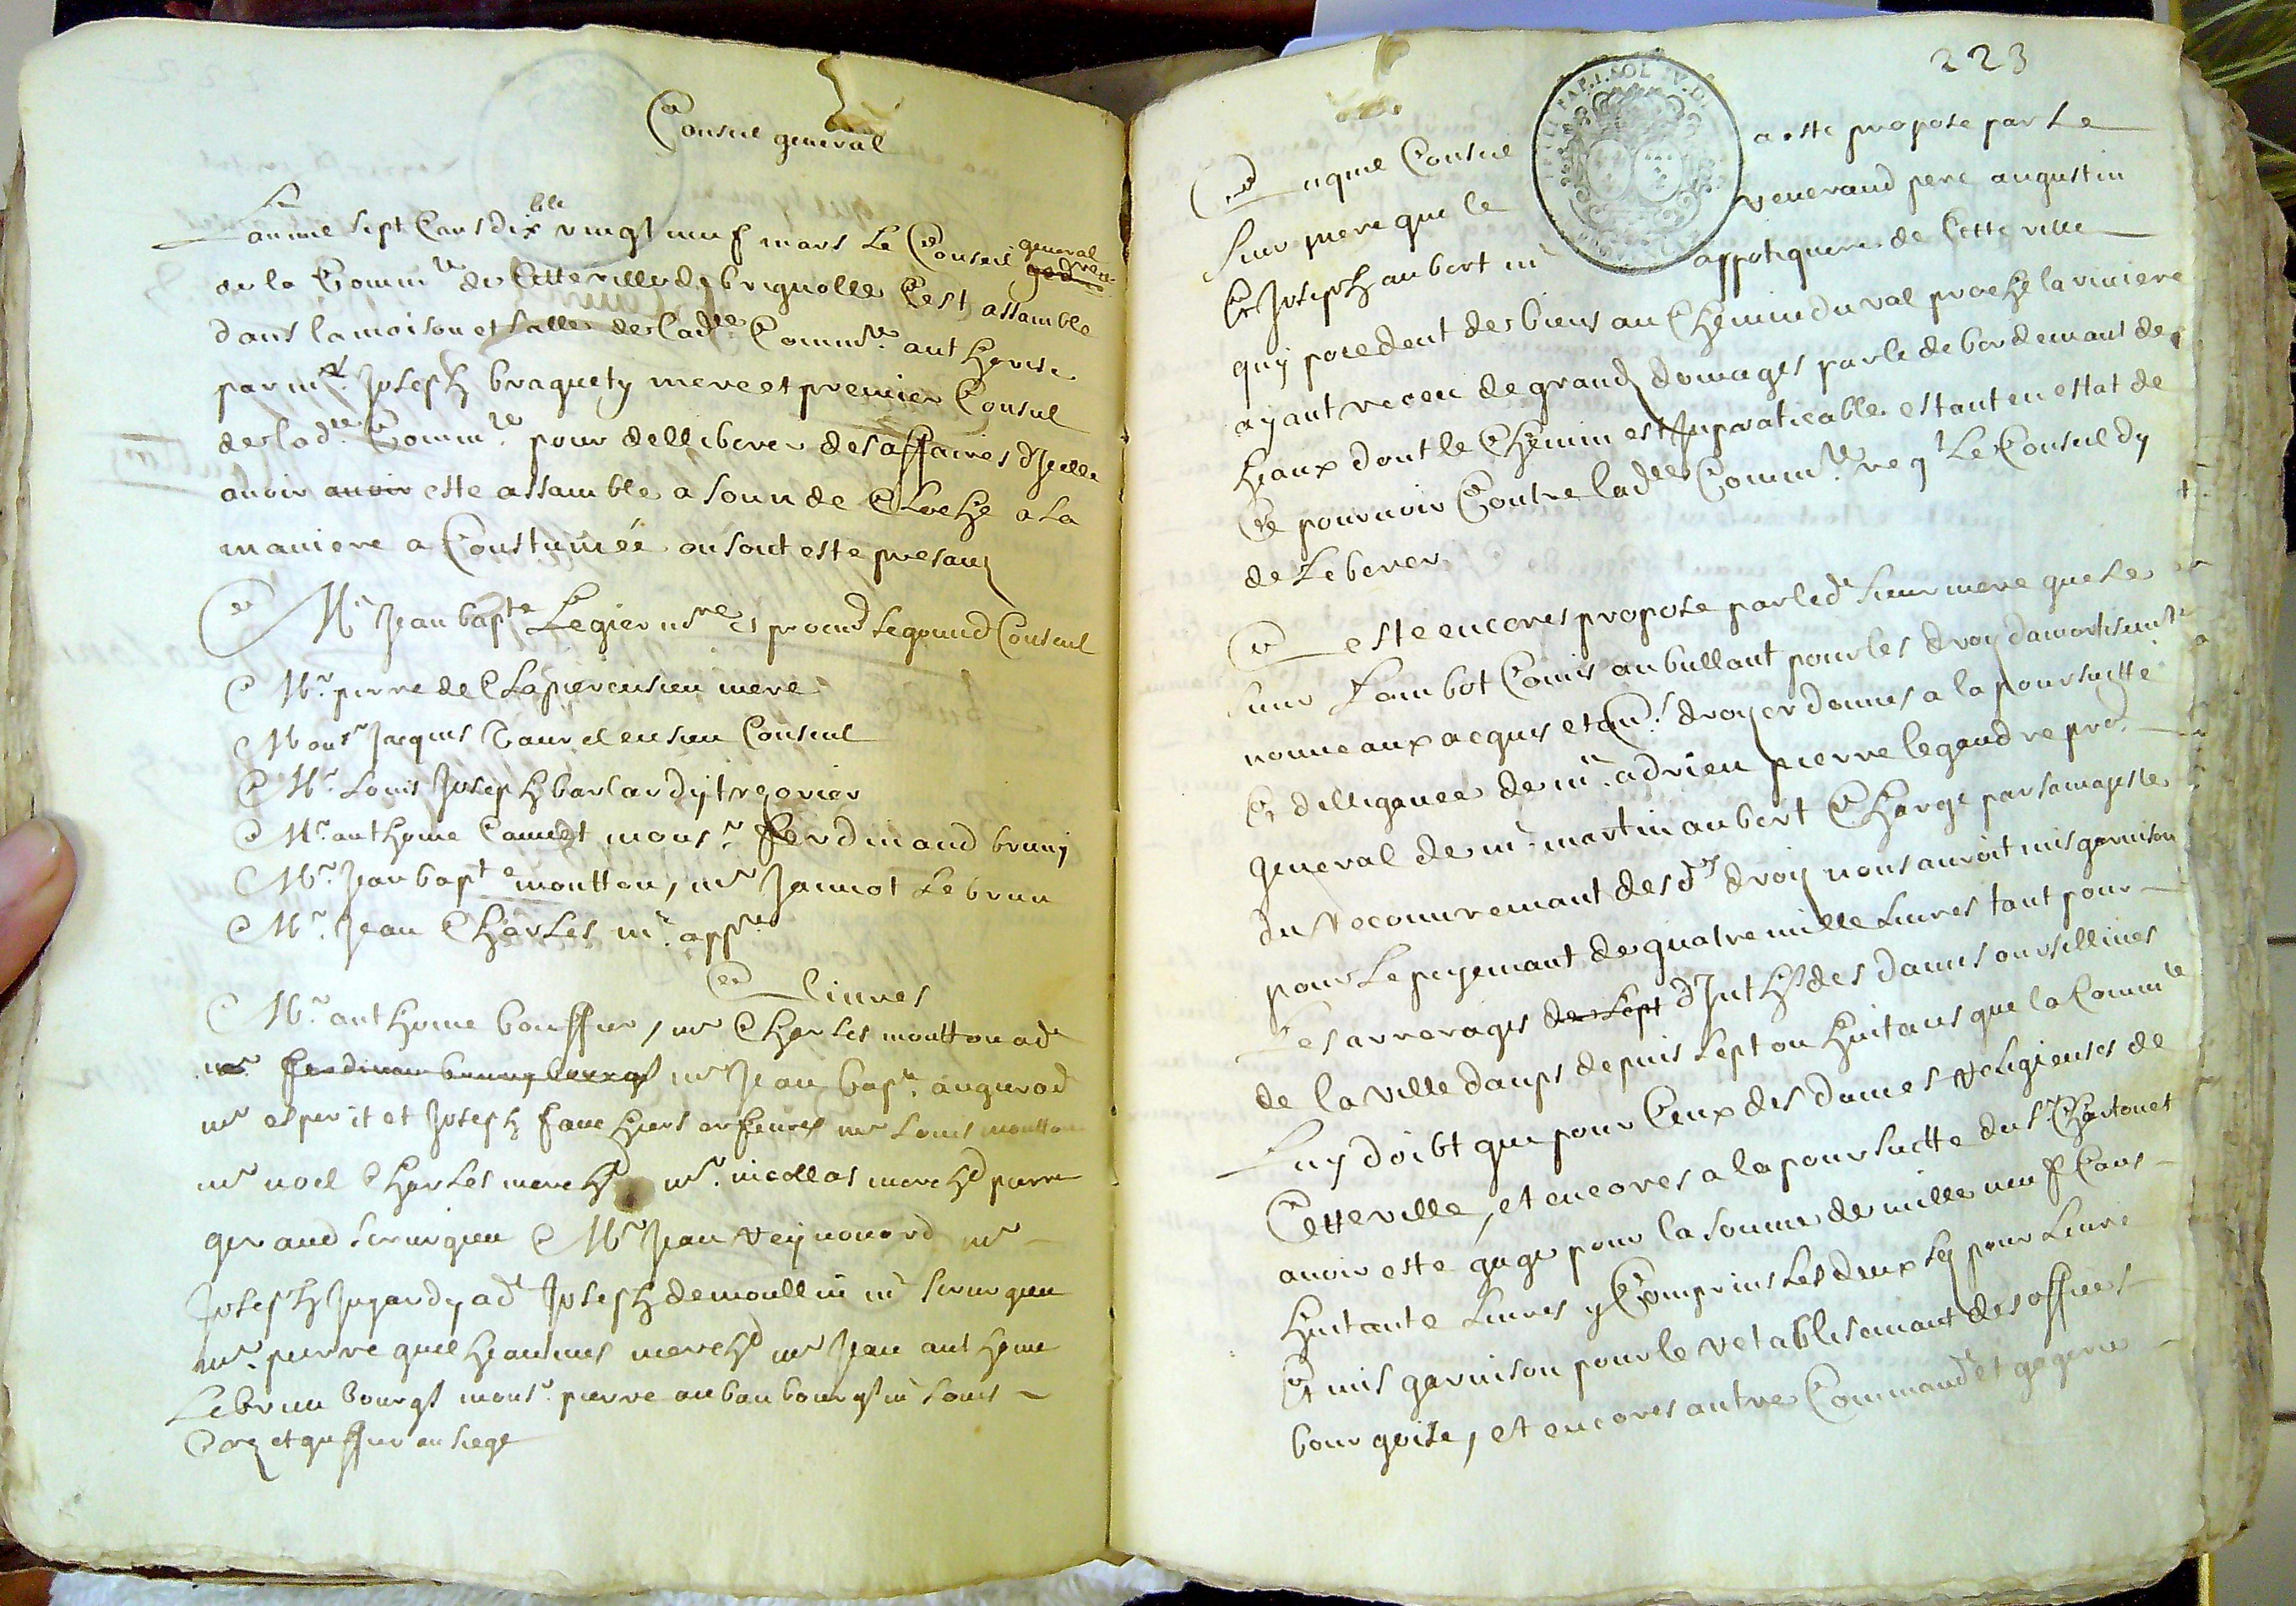 Conseil general
L'an mil sept Cens dix & le vingt neuf mars le Conseil general
de la Comm.te de Cette ville de brignolle C'est assamble
dans la maison et salle de lad.te Comm.te authorise
par m.r Joseph braquety mere et premier Consul
de lad.te Comm.te pour delliberer des affaires d'Jcelle
avoir avoir este assamble a soun de Cloche a la
maniere a Coustumée ou sont este presans
M.r Jean bap.te Legier no.re et procu.r segound Consul
M.r pierre de Clapier ensien mere
Mons.r Jacques Taurel ensien Consul
M.r Louis Joseph barlardy trezorier
M.r anthoine Camet mons.r ferdinand bruny
M.r Jean bap.te moutton, m.r Jannot Le brun
M.r Jean Charles m.e app.re
Ellieures
M.r anthoine bouffier, m.r Charles moutton ad.t
m.r ferdinan bruny bourgs m.r Jean bap.te augierad
m.r esperit et Joseph fauchiers orfeures m.r Louis moutton
m.r noel Charles march.d m.r nicollas march.d pierre
geraud sirurgien M.r Jean Reynouard m.r
Joseph Jujardy ad.t Joseph demoullin m.e sirurgien
m.r pierre guilheaumes march.d m.r Jean anthoine
Lebrun bourgs mons.r pierre auban bourgs m.e Louis
Corz et greffier au siege
223
Auquel Conseil a este propose par Le
Sieur mere que le reverand pere augustin
Et Joseph aubert m.e appotiquere de Cette ville
quy posedent des biens au Chemin du val proche la riviere
ayant receu de grands domages par le debordemant des
heaux dont le Chemin est Jnpraticable estant en estat de
Ce pourvoir Contre lad.te Comm.te req.t Le Conseil dy
deLeberer
A este encores propose par led.t sieur mere que Le
sieur Lambot Comis anbullant pour les droys d'amortisem.t
nouveaux acquis et droys ordonnes a la poursuitte
Et delligence de m.e adrien pierre legandre pro.r
general de m.e martin aubert Charge par sa majeste
du Recouvremant des d.ts droys nous auroit mis garnison
pour Le payemant de quatre mille Livres tant pour
Les arrerages de sept d'Jnth.s des dames oursellines
de la ville daups depuis sept ou huit ans que la Comm.te
Luy doibt que pour Ceux des dames religieuses de
Cette ville, et encores a la poursuitte du s.r Chartonet
avoir este gage pour la somme de mille neuf Cens
huitante Livres y Comprins les deux sols pour Livre
Et mis garnison pour le retablisemant des offices
bourgoise, et encores autre Command.t et gagerie